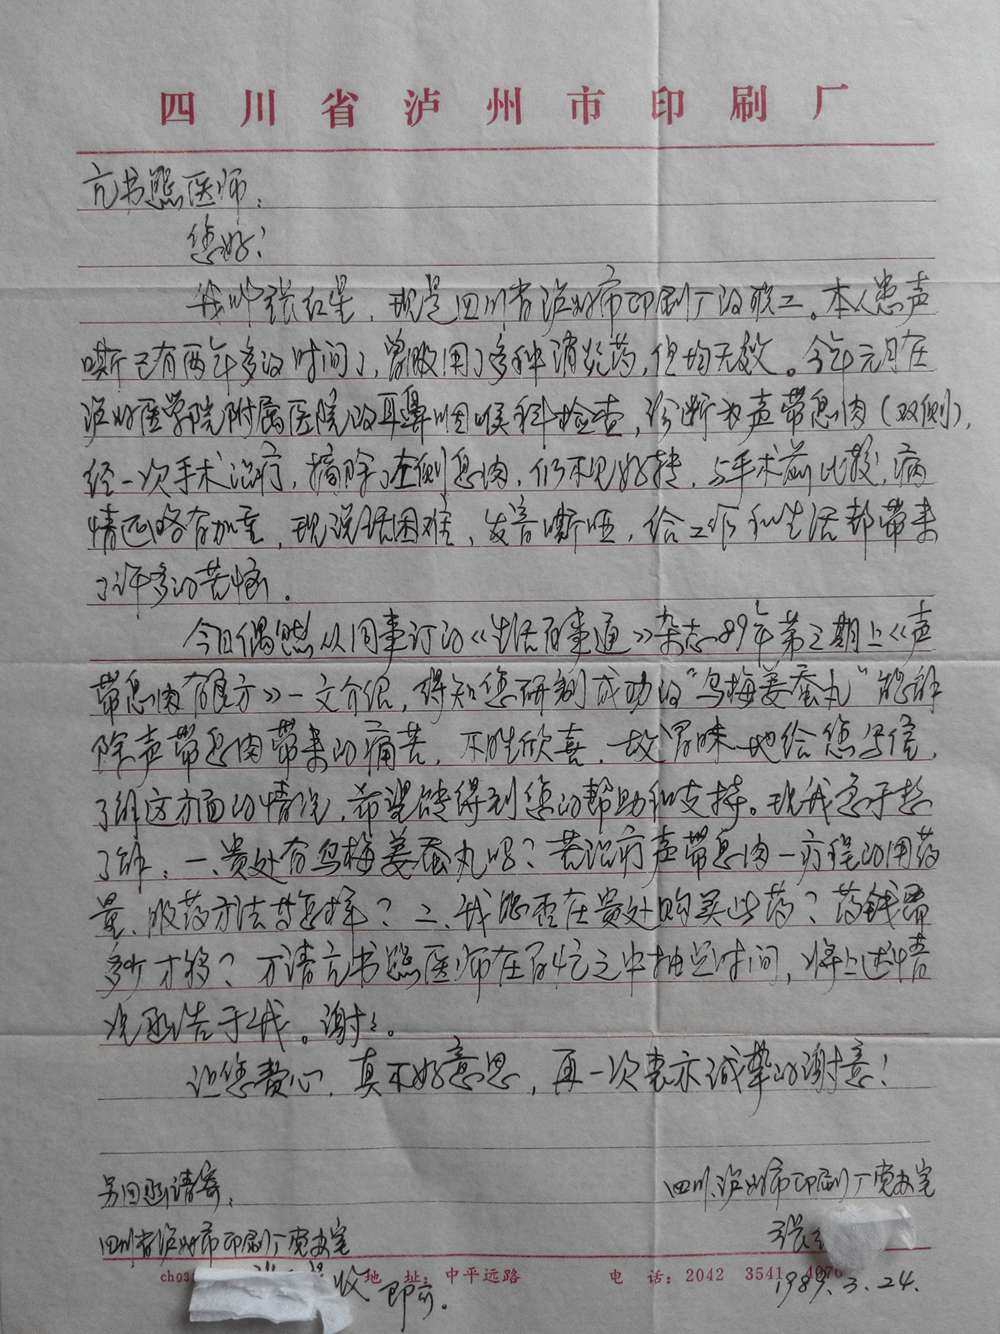 四川省泸州市印刷厂
亢书熙医师：
您好！
我叫张红星，现是四川省泸州市印刷厂的职工。本人患声
嘶已有两年多的时间了，曾服用了多种消炎药，但均无效。今年元月在
泸州医学院附属医院的耳鼻咽喉科检查，诊断为声带息肉（双侧），
经一次手术治疗，摘除了左侧息肉，仍不见好转，与手术前比较，病
情还略有加重，现说话困难、发音嘶哑，给工作和生活都带来
了许多的苦恼。
今日偶然从同事订的《生活百事通》杂志89年第三期上《声
带息肉有良方》一文介绍，得知您研制成功的“乌梅姜蚕丸”能解
除声带息肉带来的痛苦，不胜欣喜，故冒昧地给您写信，
了解这方面的情况，希望能得到您的帮助和支持。现我急于想
了解：一、贵处有乌梅姜蚕丸吗？若治疗声带息肉一疗程的用药
量、服药方法等怎样？二、我能否在贵处购买此药？药钱需
多少才够？万请亢书熙医师在百忙之中抽点时间，将上述情
况函告于我。谢谢。
让您费心，真不好意思，再一次表示诚挚的谢意！
另回函请寄：
四川省泸州市印刷厂党办室
收 即可.
四川泸州市印刷厂党办室
张
1989.3.24.
地 址：中平远路 电 话：2042 3541